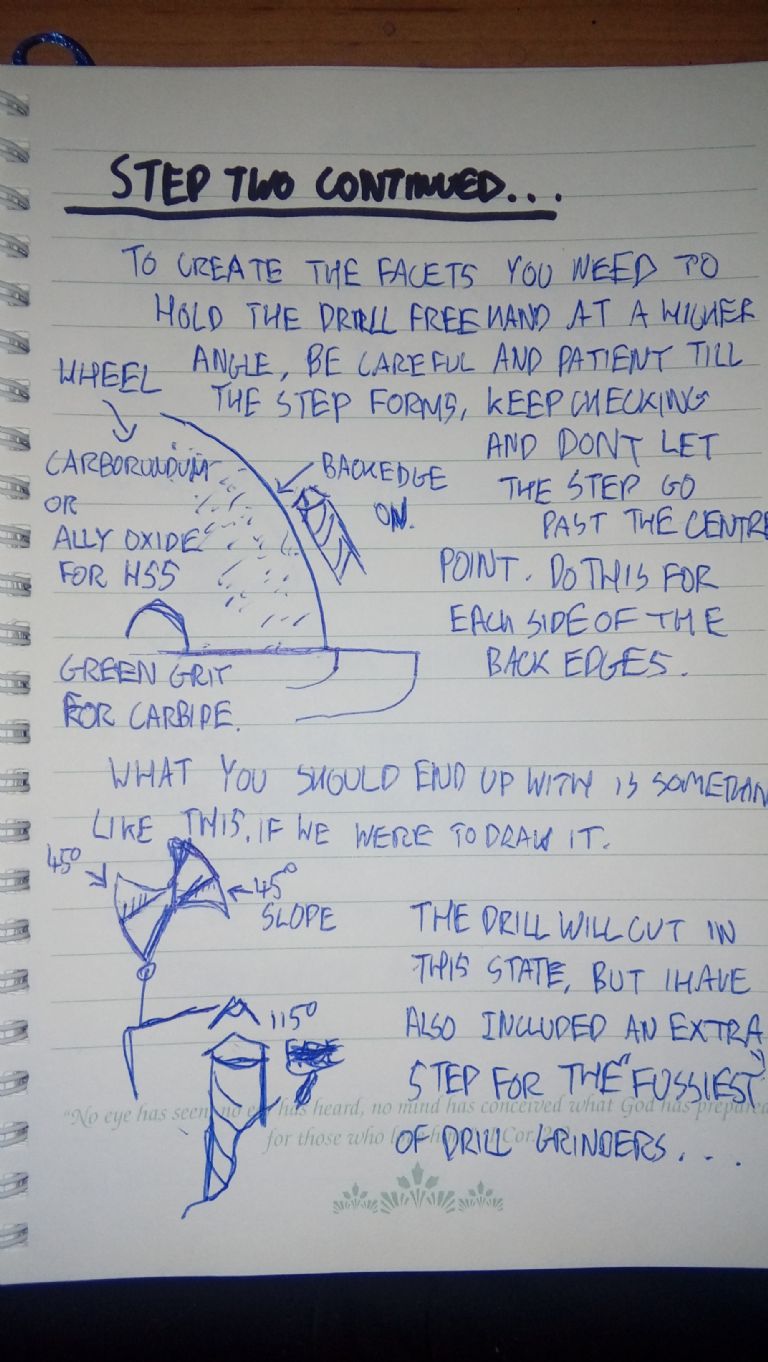 STEP TWO CONTINUED...
TO CREATE THE FACETS YOU NEED TO
HOLD THE DRILL FREEHAND AT A HIGHER
ANGLE, BE CAREFUL AND PATIENT TILL
THE STEP FORMS, KEEP CHECKING
AND DONT LET
THE STEP GO
PAST THE CENTRE
POINT. DO THIS FOR
EACH SIDE OF THE
BACK EDGES.
WHEEL
CARBORUNDUM
OR
ALLY OXIDE
FOR HSS
BACKEDGE
ON.
GREEN GRIT
FOR CARBIDE.
WHAT YOU SHOULD END UP WITH IS SOMETHIN
LIKE THIS, IF WE WERE TO DRAW IT.
45°
45°
SLOPE
115°
THE DRILL WILL CUT IN
THIS STATE, BUT I HAVE
ALSO INCLUDED AN EXTRA
STEP FOR THE "FUSSIEST"
OF DRILL GRINDERS...
"No eye has seen, no ear has heard, no mind has conceived what God has prepared
for those who love him" 1 Cor.